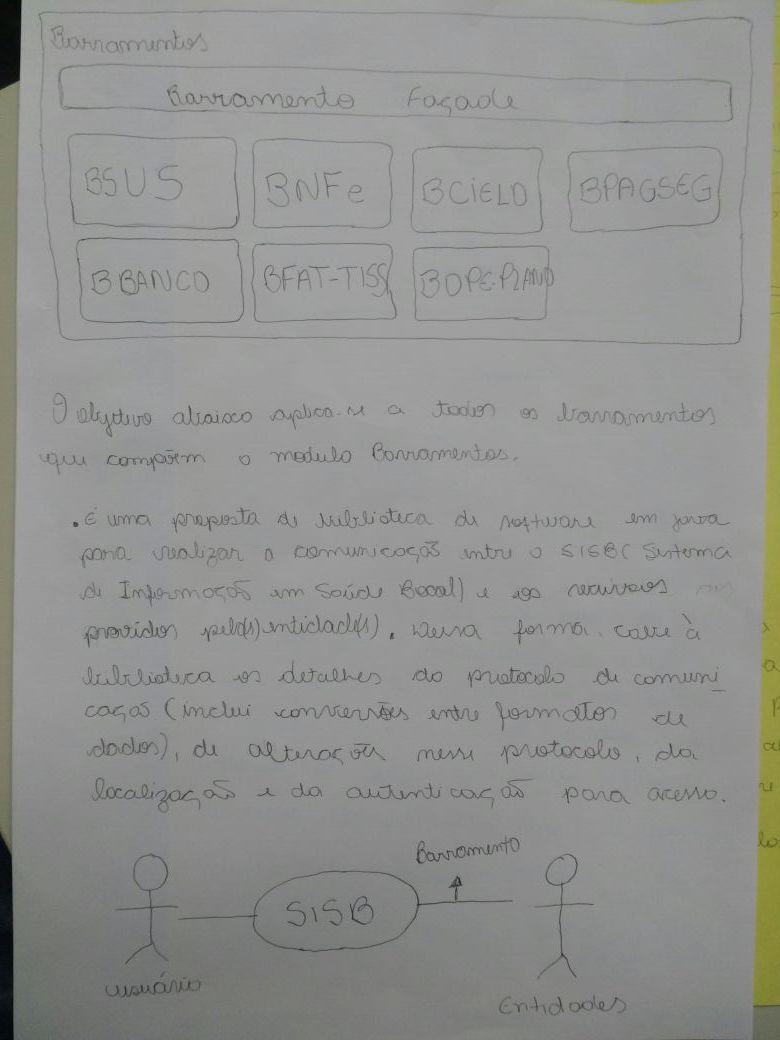 Barramentos
Barramento Façade
BSUS BNFe BCIELO BPAGSEG
BBANCO BFAT-TISS BOPE-PLANO
O objetivo abaixo aplica-se a todos os barramentos
que compõem o modulo Barramentos.
. É uma proposta de biblioteca de software em java
para realizar a comunicação entre o SISB( Sistema
de Informação em Saúde Bocal) e os recursos
providos pela(s) entidade(s). Dessa forma. cabe à
biblioteca os detalhes do protocolo de comuni_
cação (inclui conversões entre formatos de
dados), de alterações nesse protocolo, da
localização e da autenticação para acesso.
Barramento
SISB
usuário
Entidades